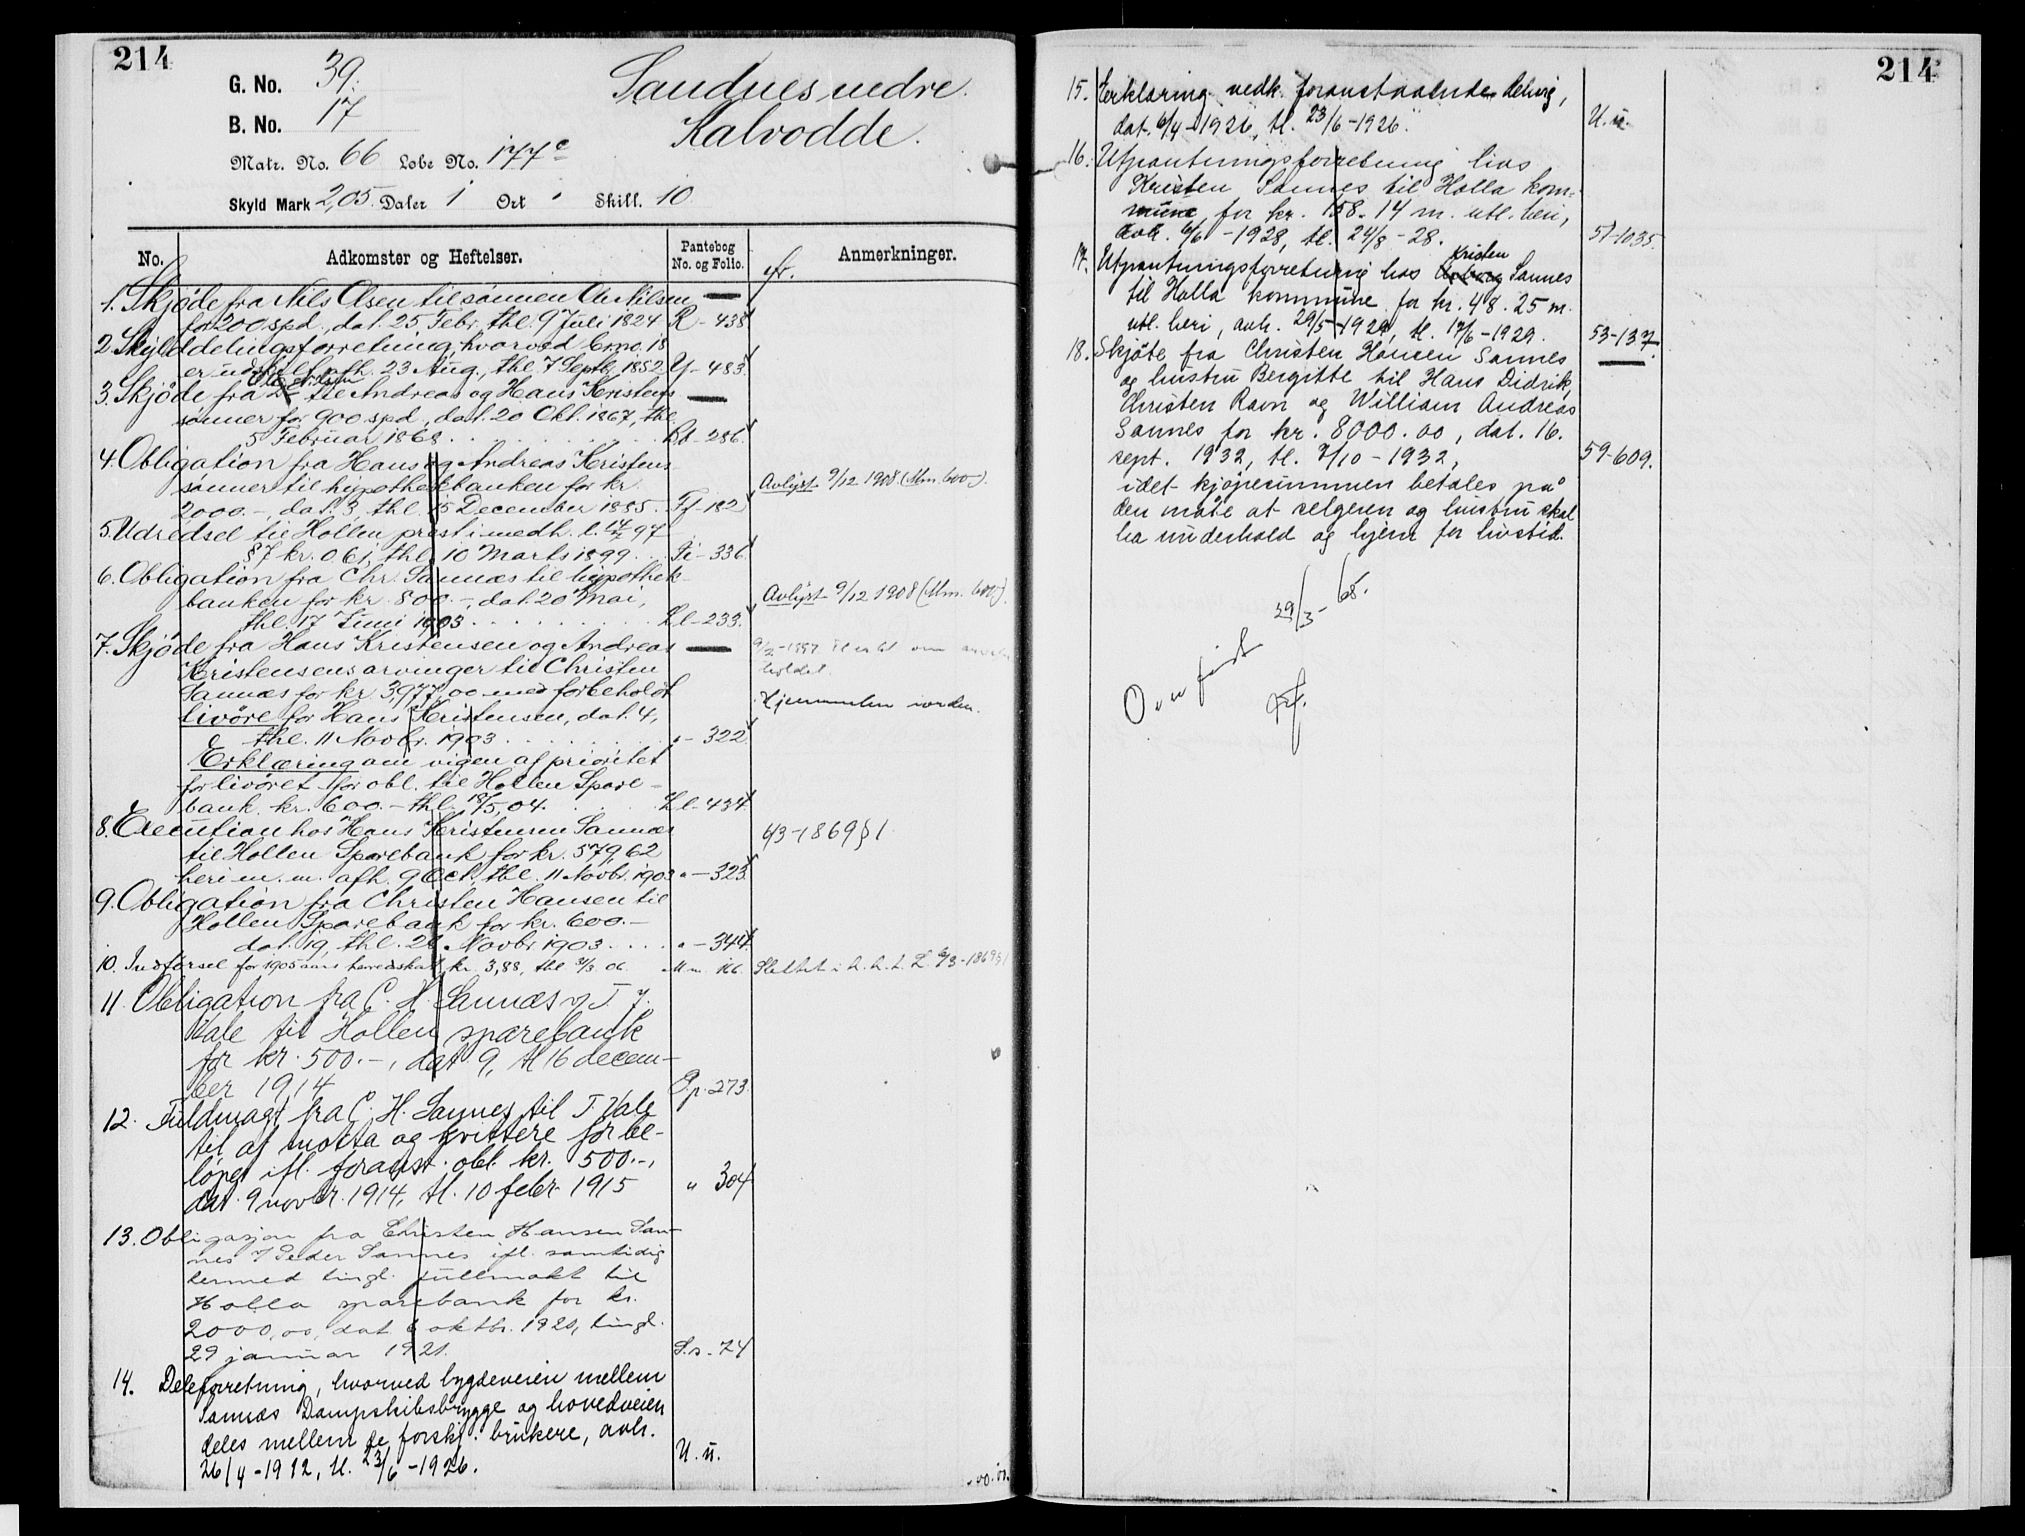 214
G. No. 39.
B. No. 17
Sandnes nedre.
Kalvodde.
Matr. No. 66 Løbe No. 177c
Skyld Mark 2,05. Daler 1 Ort " Skill. 10
No. Adkomster og Heftelser. Pantebog No. og Folio. Anmerkninger.
cfr.
1. Skjøde fra Nils Olsen til sønnen Ole Nilsen
for 200 spd., dat. 25 Febr., thl. 9 Juli 1824 R - 438
2. Skylddelingsforretning, hvorved brno. 18
er udskilt, afh. 23 Aug., thl. 7 Septbr. 1852 Y - 483.
Ole Nilsen
3. Skjøde fra til Andreas og Hans Kristens
sønner for 900 spd., dat. 20 Okt. 1867, thl.
5 Februar 1868 . . . . - 286.
4. Obligation fra Hans og Andreas Kristens
sønner til hypothekbanken for kr.
2000.-, dat. 3, thl. 15 December 1885. Ff - 182
Avlyst 9/12 1908 (Mm. 600).
5. Udredsel til Hollen prest i medh. l. 14/7 97
§ 7 kr. 0.61, thl. 10 Marts 1899 . . Ii - 336.
6. Obligation fra Chr. Sannæs til hypothek-
banken for kr. 800.-, dat. 20 Mai,
thl. 17 Juni 1903 . . . . Ll - 233.
Avlyst 9/12 1908 (Mm. 600).
7. Skjøde fra Hans Kristensen og Andreas
Kristensens arvinger til Christen
Sannæs for kr. 3,977,00 med forbeholdt
livøre for Hans Kristensen, dat. 4,
thl. 11 Novbr. 1903 . . . . " - 322
holdet.
Hjemmelen iorden.
Erklæring om vigen af prioritet
for livøret for obl. til Hollen Spare-
bank kr. 600.- thl. 18/5, 04. Ll - 434.
8. Execution hos Hans Kristensen Sannæs
til Hollen Sparebank for kr. 579,62
heri m. m. afh. 9 Oct., thl. 11 Novbr. 1903 " - 323.
6/3 - 1869 § 1
9. Obligation fra Christen Hansen til
Hollen Sparebank for kr. 600.-
dat. 19, thl. 2 Novbr. 1903 . . . . " - 344.
10. Indførsel for 1905 aars herredskat, kr. 3,88, thl. 3/3 06. Mm. 166. Slettet i h. t. L. 6/3 - 1869 § 1
11. Obligation fra C. H. Sannæs v/ T. J.
Vale til Hollen sparebank
for kr. 500.-, dat. 9, tl 16 decem-
ber 1914 Pp. 273.
12. Fuldmagt fra C. H. Sannes til T. Vale
til at motta og kvittere for be-
løpet ifl. foranst. obl. kr. 500.-,
dat. 9 novbr. 1914, tl. 10 febr. 1915 " 304
13. Obligasjon fra Christen Hansen San-
nes v/ Peder Sannes ifl. samtidig
hermed tingl. fullmakt til
Holla sparebank for kr.
2000,00, dat. 6 oktbr. 1920, tingl.
29 januar 1921. Ss. 74
14. Deleforretning, hvorved bygdeveien mellem
Sannæs Dampskibsbrygge og hovedveien
deles mellem de forskj. brukere, avh.
26/4 - 1912, tl. 23/6 - 1926. U. u.
214
15. Erklæring vedk. foranstaaende deling,
dat. 6/4 - 1926, tl. 23/6 - 1926. U. u.
16. Utpantningsforretning hos
Kristen Sannes til Holla kom-
mune for kr. 158.14 m. utl. heri,
avh. 6/6 - 1928, tl. 24/8 - 28. 51 - 1035.
Kristen
17. Utpantningsforretning hos Sannes
til Holla kommune for kr. 48.25 m.
utl. heri, avh. 29/5 - 1929, tl. 17/6 - 1929. 53 - 137.
18. Skjøte fra Christen Hansen Sannes
og hustru Bergitte til Hans Didrik,
Christen Ravn og William Andreas
Sannes for kr. 8000.00, dat. 16.
sept. 1932, tl. 7/10 - 1932, 59 - 609.
idet kjøpesummen betales på
den måte at selgeren og hustru skal
ha underhold og hjem for livstid.
Overført 29/3 - 68.